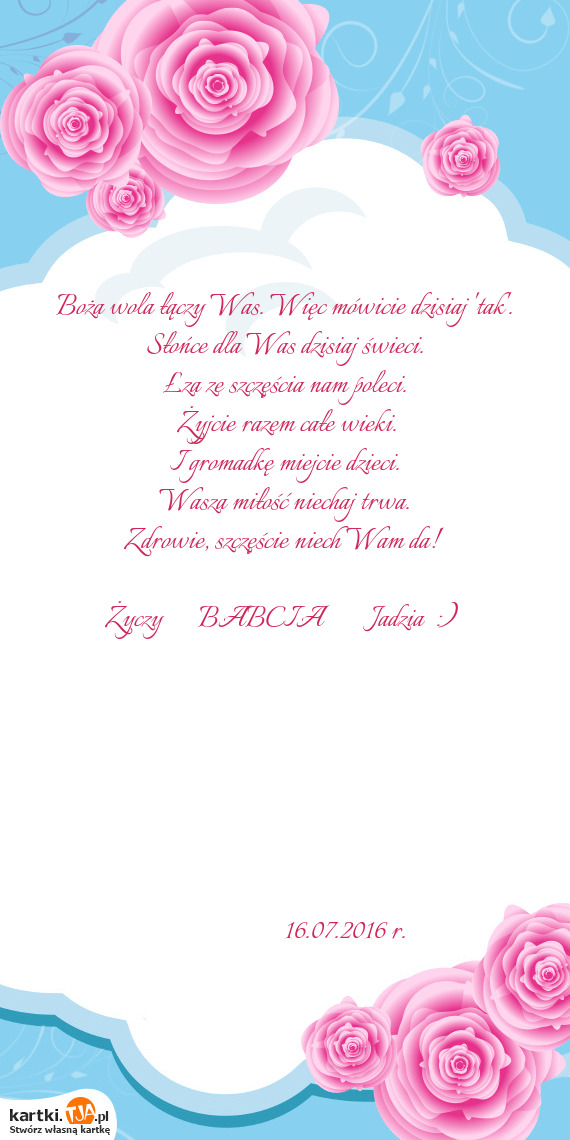 Boża wola łączy Was. Więc mówicie dzisiaj 'tak'.
Słońce dla Was dzisiaj świeci.
Łza ze szczęścia nam poleci.
Żyjcie razem całe wieki.
I gromadkę miejcie dzieci.
Wasza miłość niechaj trwa.
Zdrowie, szczęście niech Wam da!
Życzy BABCIA Jadzia :)
16.07.2016 r.
kartki.TJA.pl
Stwórz własną kartkę